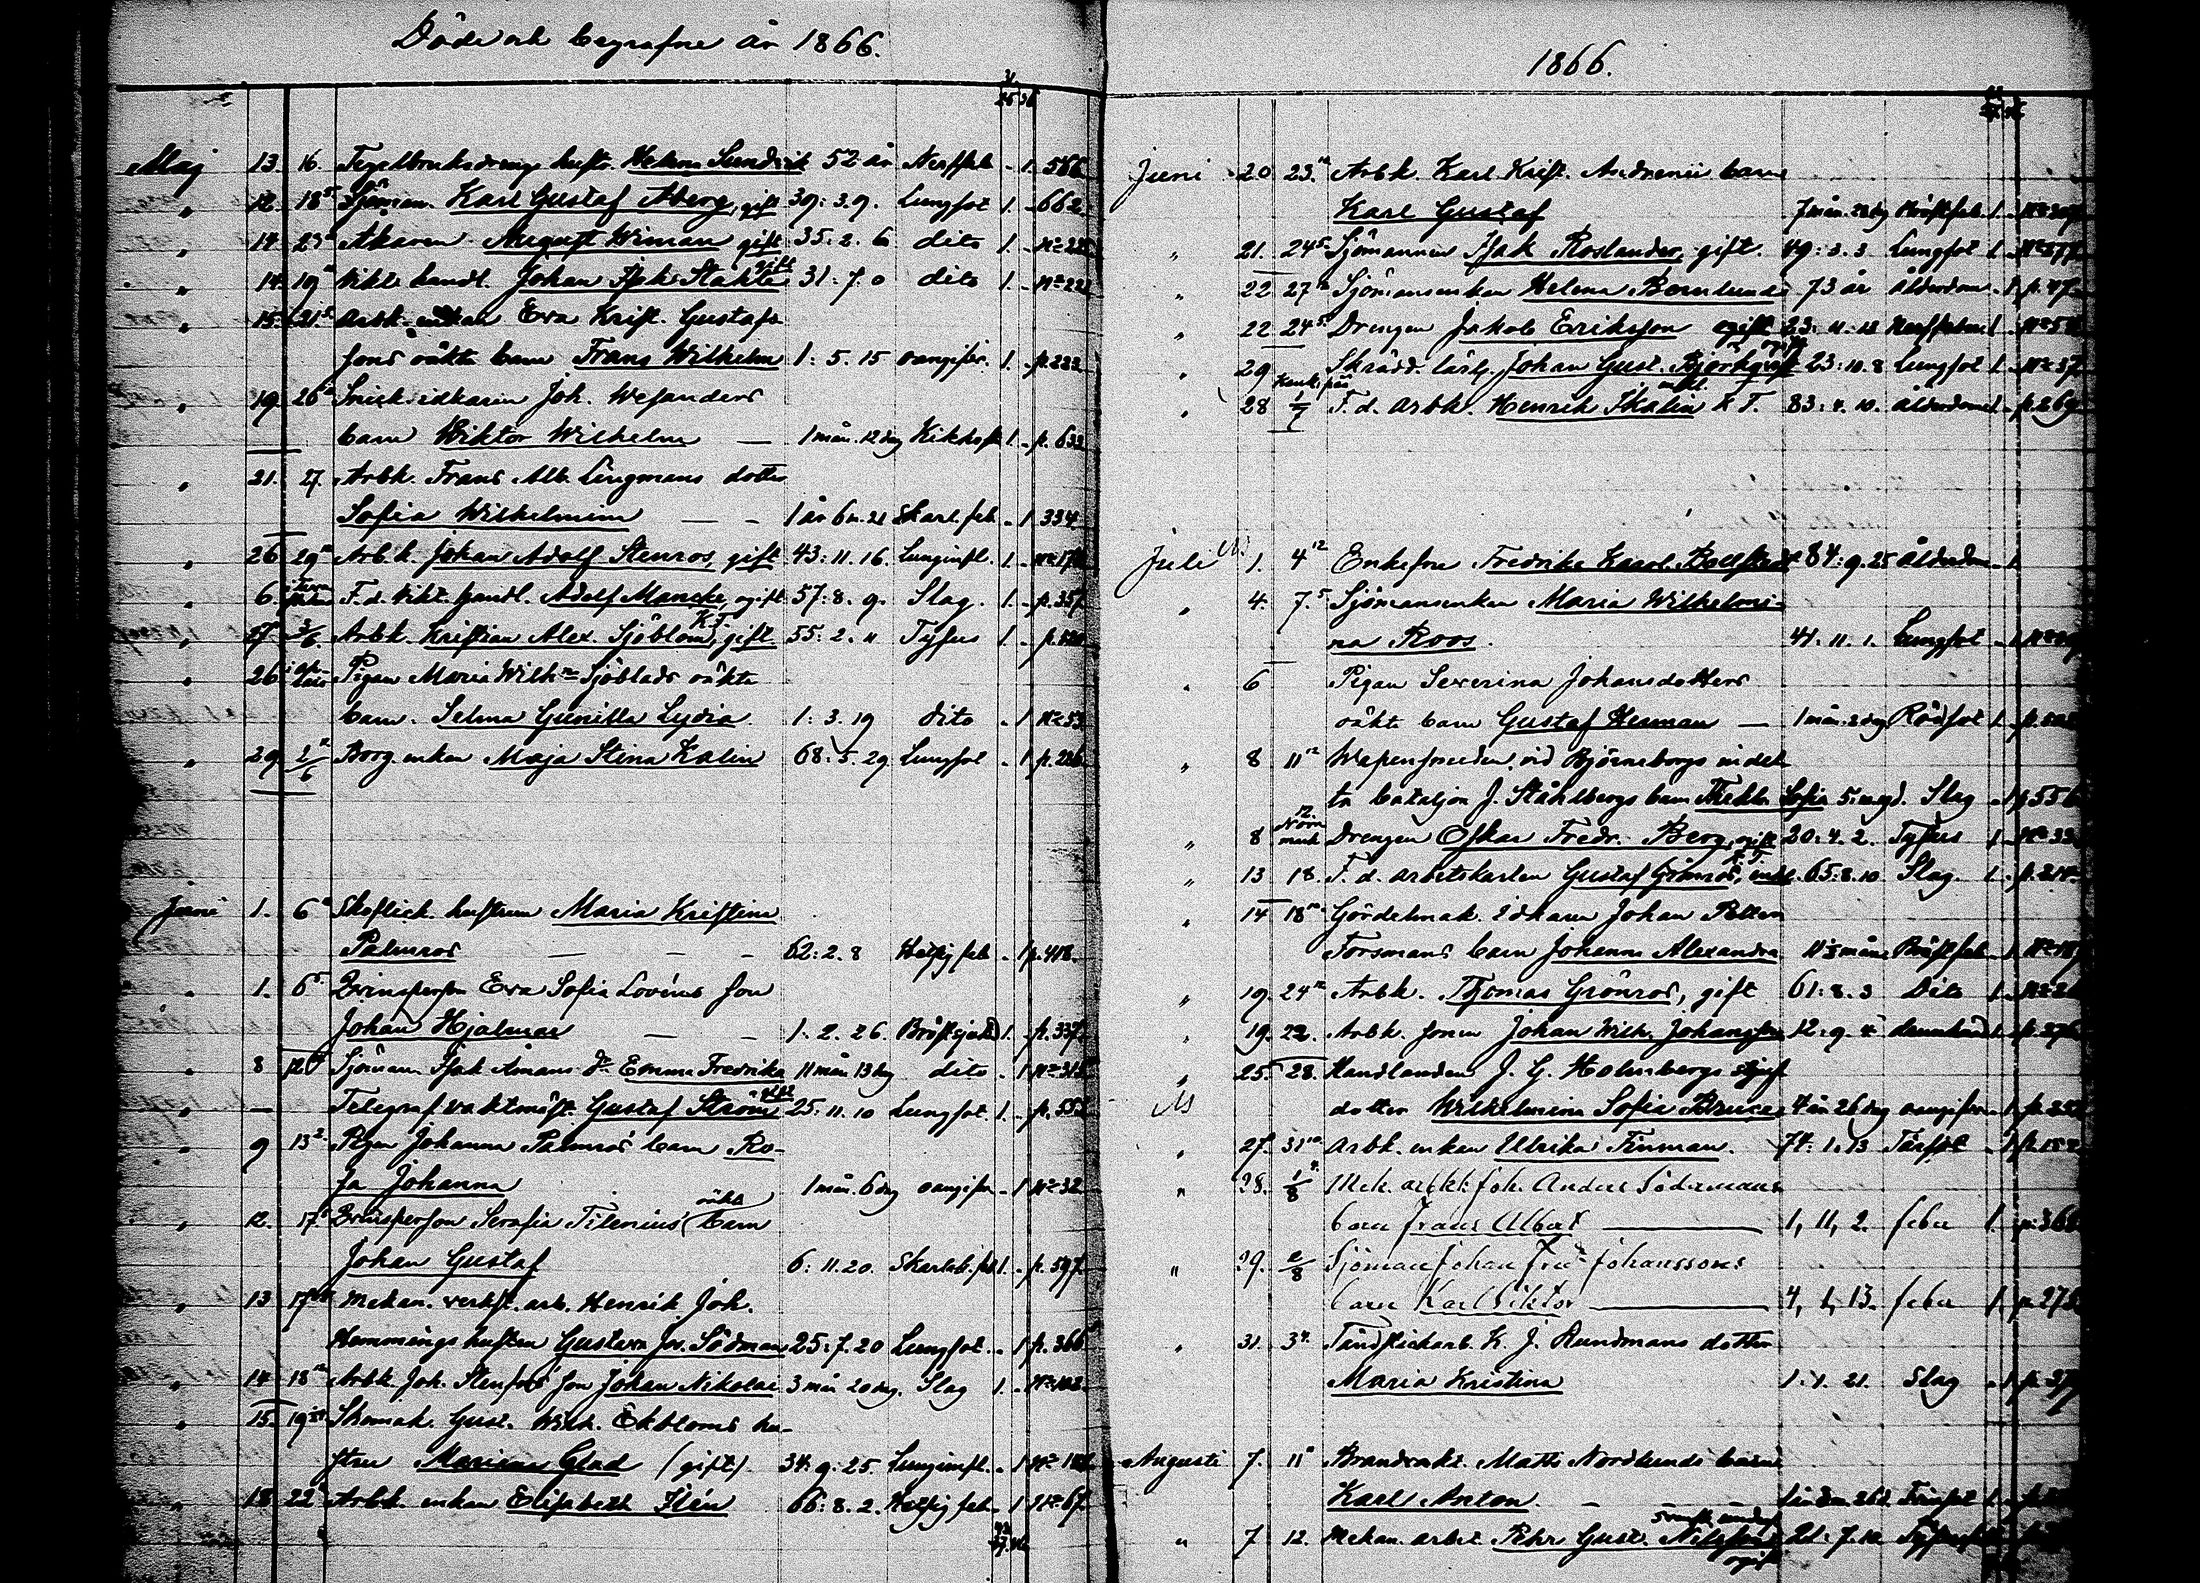 Döde och begrafne år 1866.
Maj 13. 16. Tegelbruksdreng. hustr. Helena Sundvik 52 år Nerffeb. - 1. 566.
" 12. 18 Sjöman Karl Gustaf Åberg, gift 39: 3. 9. Lungsot 1. - 662.
" 14 23 Åkaren August Wiman gift 35. 2. 6 dito 1. -
" 14. 19 Vikt. handl. Johan Isak Stahle gift 31. 7. 0 dito 1. -
" 15. 21. Arbk. enkan Eva Krist. Gustafs
sons oäkta barn Frans Wilhelm 1. 5. 15 oangifv. 1. - p. 223
" 19. 26 Snick. idkaren Joh. Wesanders
barn Wiktor Wilhelm — 1 mån. 12 dag Kikhosta 1. - p. 632
" 21. 27. Arbk. Frans Alb. Lingmans dotter
Sofia Wilhelmina — - 1 år 6 m. 21 Skarl. feb. - 1 334.
" 26 29 Arbk. Johan Adolf Stenros, gift 43: 11. 16. Lunginfl. 1. -
" 6. F. d. Vikt. handl. Adolf Mancke, ogift 57: 8. 9. Slag. 1. - p. 357
" 27. 3/6. Arbk. Kristian Alex. Sjöblom, gift 55: 2. 11 Tyfus 1. -
" 26 Pigan Maria Wilh:na Sjöblads oäkta
barn. Selma Gunilla Lydia 1: 3. 19 dito - 1 No 53
" 29. 2/6 Borg. enkan Maja Stina Kalin 68: 5. 29 Lungsot - 1 p. 226.
Juni 1. 6 Skoflick. hustrun Maria Kristina
Palmros — - - 62: 2. 8 Hetsig feb. - 1 p. 418.
" 1. 6 Qvinsperson Eva Sofia Lovéns son
Johan Hjalmar — - 1. 2. 26. Bröstsjukd. 1. - p. 337.
" 8 12 Sjöman Isak Åmans dr Emma Fredrika 11 mån 13 dag dito - 1
" — Telegraf vaktmäst. Gustaf Ström, gift 25: 11. 10 Lungsot. 1. - p. 553
" 9 13 Pigan Johanna Palmros' barn Ro-
sa Johanna 1 mån. 6 dag oangifv. - 1 No 32
" 12. 17 Qvinsperson Serafia Tilenius' oäkta barn
Johan Gustaf 6: 11. 20. Skarlak. feb. 1. - p. 597.
" 13 17 Mekan. verkst. arb. Henrik Joh.
Hemmings hustru Gustava Jos. Södman 25: 7. 20 Lungsot. - 1 p. 366
" 14 18 Arbk. Joh. Stenfors' son Johan Nikolai 3 mån 20 dag. Slag 1. -
" 15. 19 Skomak. Gust. Wilh. Ekbloms hu-
stru Mariana Glad (gift) 34. 9. 25. Lunginfl. - 1
" 18 22 Arbk. enkan Elisabeth Ilén 66: 8. 2. Hetsig feb. - 1 No 67
1866.
Juni 20 23. Arbk. Karl Krist. Andrenii barn
Karl Gustaf 7 mån. 22 dag Bröstfeb. 1. -
" 21. 24 Sjömannen Isak Roslander, gift. 49: 3. 3 Lungsot 1. - No 577
" 22 27 Sjömansenkan Helena Bernlund 73 år Ålderdom - 1. p. 47.
" 22 24 Drengen Jakob Eriksson ogift 23: 11. 13 1. -
" 29 Skrädd. lärl. Johan Gust. Björkqvist ogift 23: 10. 8 Lungsot 1. - No 37
" 28 1/7 F. d. arbk. Henrik Skalin enkl. K. T. 83: 4. 10. ålderdom 1. - p. 269
Juli 1. 4 Enkefru Fredrika Karol. Bollstedt 84: 9. 25 Ålderdom - 1.
" 4. 7. Sjömansenkan Maria Wilhelmi-
na Roos. 41. 11. 1. Lungsot - 1
" 6 Pigan Severina Johansdotters
oäkta barn Gustaf Herman — 1 mån. 2 dag Rödsot 1. -
" 8 11 Wapensmeden vid Björneborgs indel
ta bataljon J. Ståhlbergs barn Thekla Sofia Slag - 1 p. 556
" 8 12 Norrmark Drengen Oskar Fredr. Berg, ogift 20: 4. 2. Tyfus 1. - No 33
" 13 18. F. d. arbetskarlen Gustaf Grönros, enkl. 65: 8. 10 Slag. 1. - p. 214
" 14 18 Gördelmak. idkaren Johan Petter
Forsmans barn Johanna Alexandra 11 1/2 mån Bröstfeb. - 1.
" 19. 24 Arbk. Thomas Grönros, gift 61: 8. 3 Dito 1. -
" 19. 22. Arbk. sonen Johan Wilh. Johansson 12: 9. 4 1. - p. 376
" 25. 28. Handlanden J. G. Holmbergs styf
dotter Wilhelmina Sofia Bruce 4 år 26 dag oangifven - 1
" 27. 31 Arbk. enkan Ulrika Finman. 74: 1. 13 Tärsot - 1
" 28. 1/8 Mek. arbk. Joh. Anders Södermans
barn Frans Albert — 1, 11, 2. feber 1. p. 366
" 29. 2/8 Sjöman Johan Fredr. Johanssons
barn Karl Viktor — 4, 1, 13. feber 1. p 273
" 31. 3 Tändstickarb. K. J. Rundmans dotter
Maria Kristina 1. 1. 21. Slag - 1. p. 37
Augusti 7. 11 Brandvakt. Matts Nordlunds barn
Karl Anton
" 7 12. Mekan. arbet. Pehr Gust. Nilsson ogift 21: 7. 12